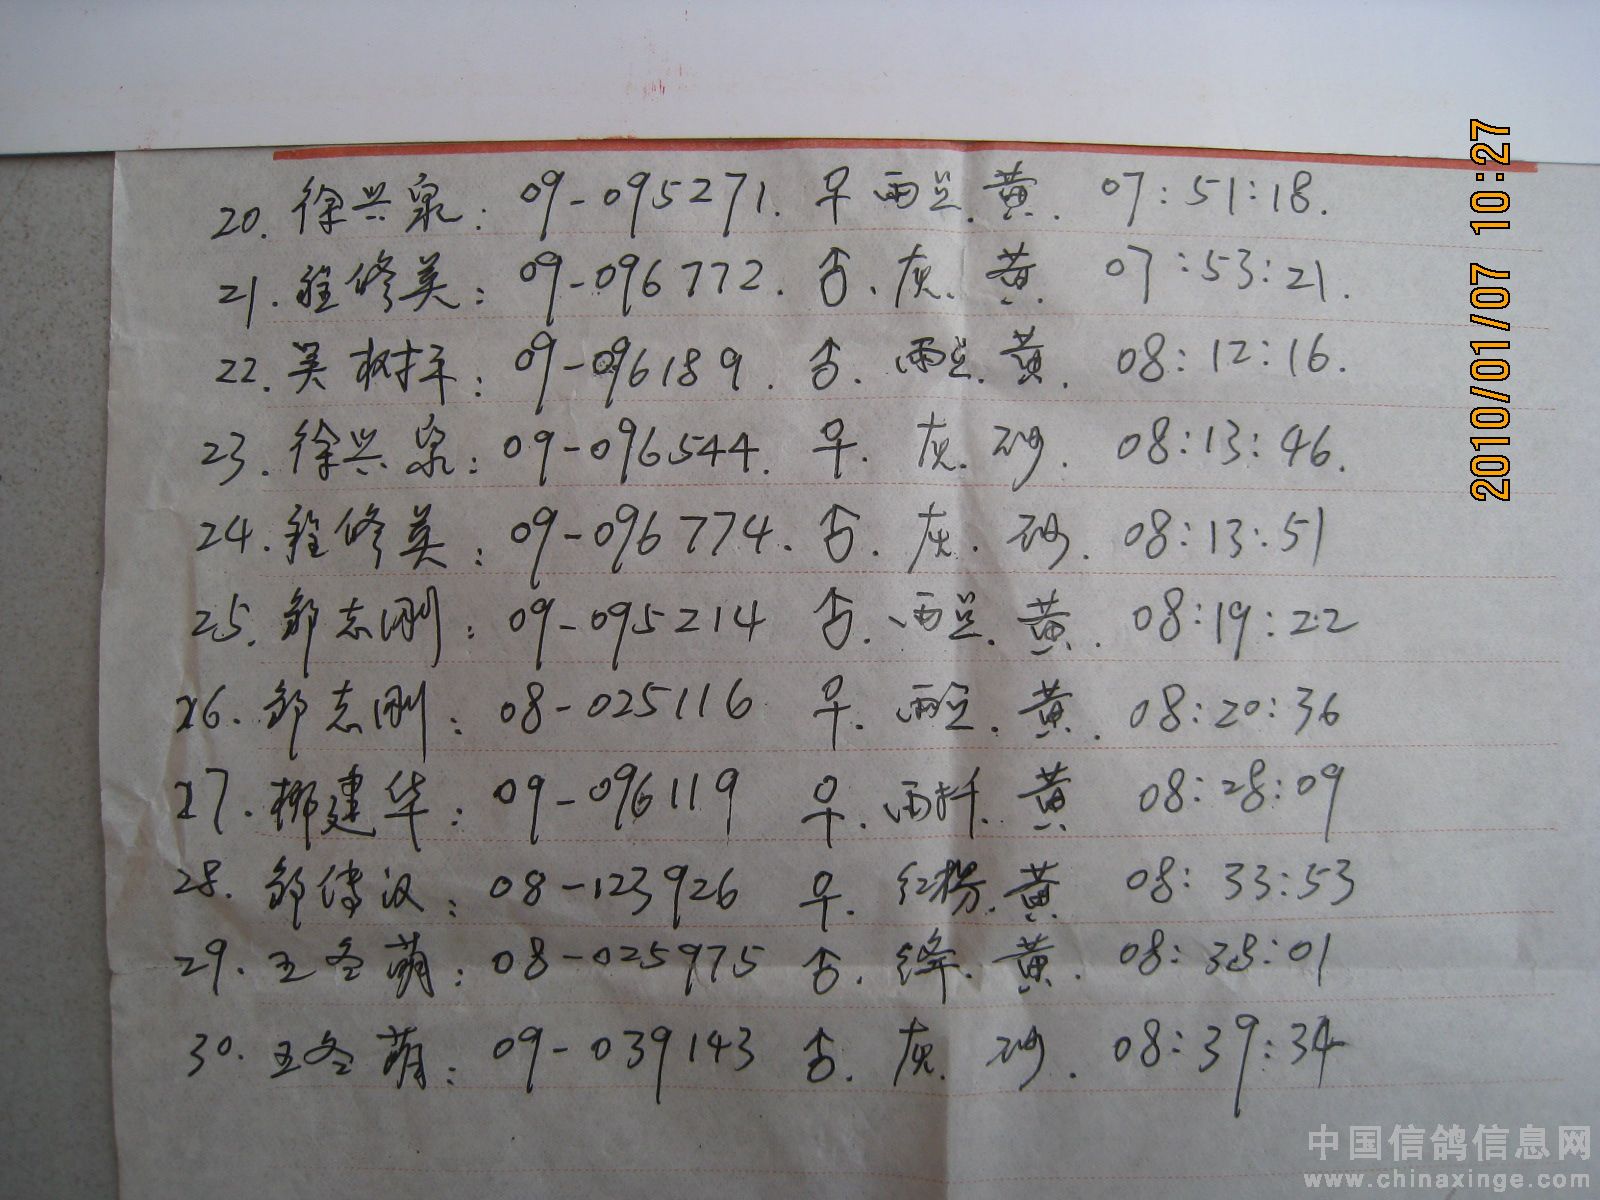 20. 徐兴泉: 09-095271. ♀ 雨点. 黄. 07:51:18.
21. 程修英: 09-096772. ♂. 灰. 黄. 07:53:21.
22. 吴树军: 09-096189. ♂. 雨点. 黄. 08:12:16.
23. 徐兴泉: 09-096544. ♀. 灰. 砂. 08:13:46.
24. 程修英: 09-096774. ♂. 灰. 砂. 08:13:51
25. 邹志刚: 09-095214 ♂. 雨点. 黄. 08:19:22
26. 邹志刚: 08-025116 ♀. 雨点. 黄. 08:20:36
27. 柳建华: 09-096119 ♀. 雨. 黄 08:28:09
28. 邹传汉: 08-123926 ♀. 红楞. 黄 08:33:53
29. 王冬萌: 08-025975 ♂. 绛. 黄. 08:38:01
30. 王冬萌: 09-039143 ♂. 灰. 砂. 08:39:34
2010/01/07 10:27
中国信鸽信息网
www.chinaxinge.com